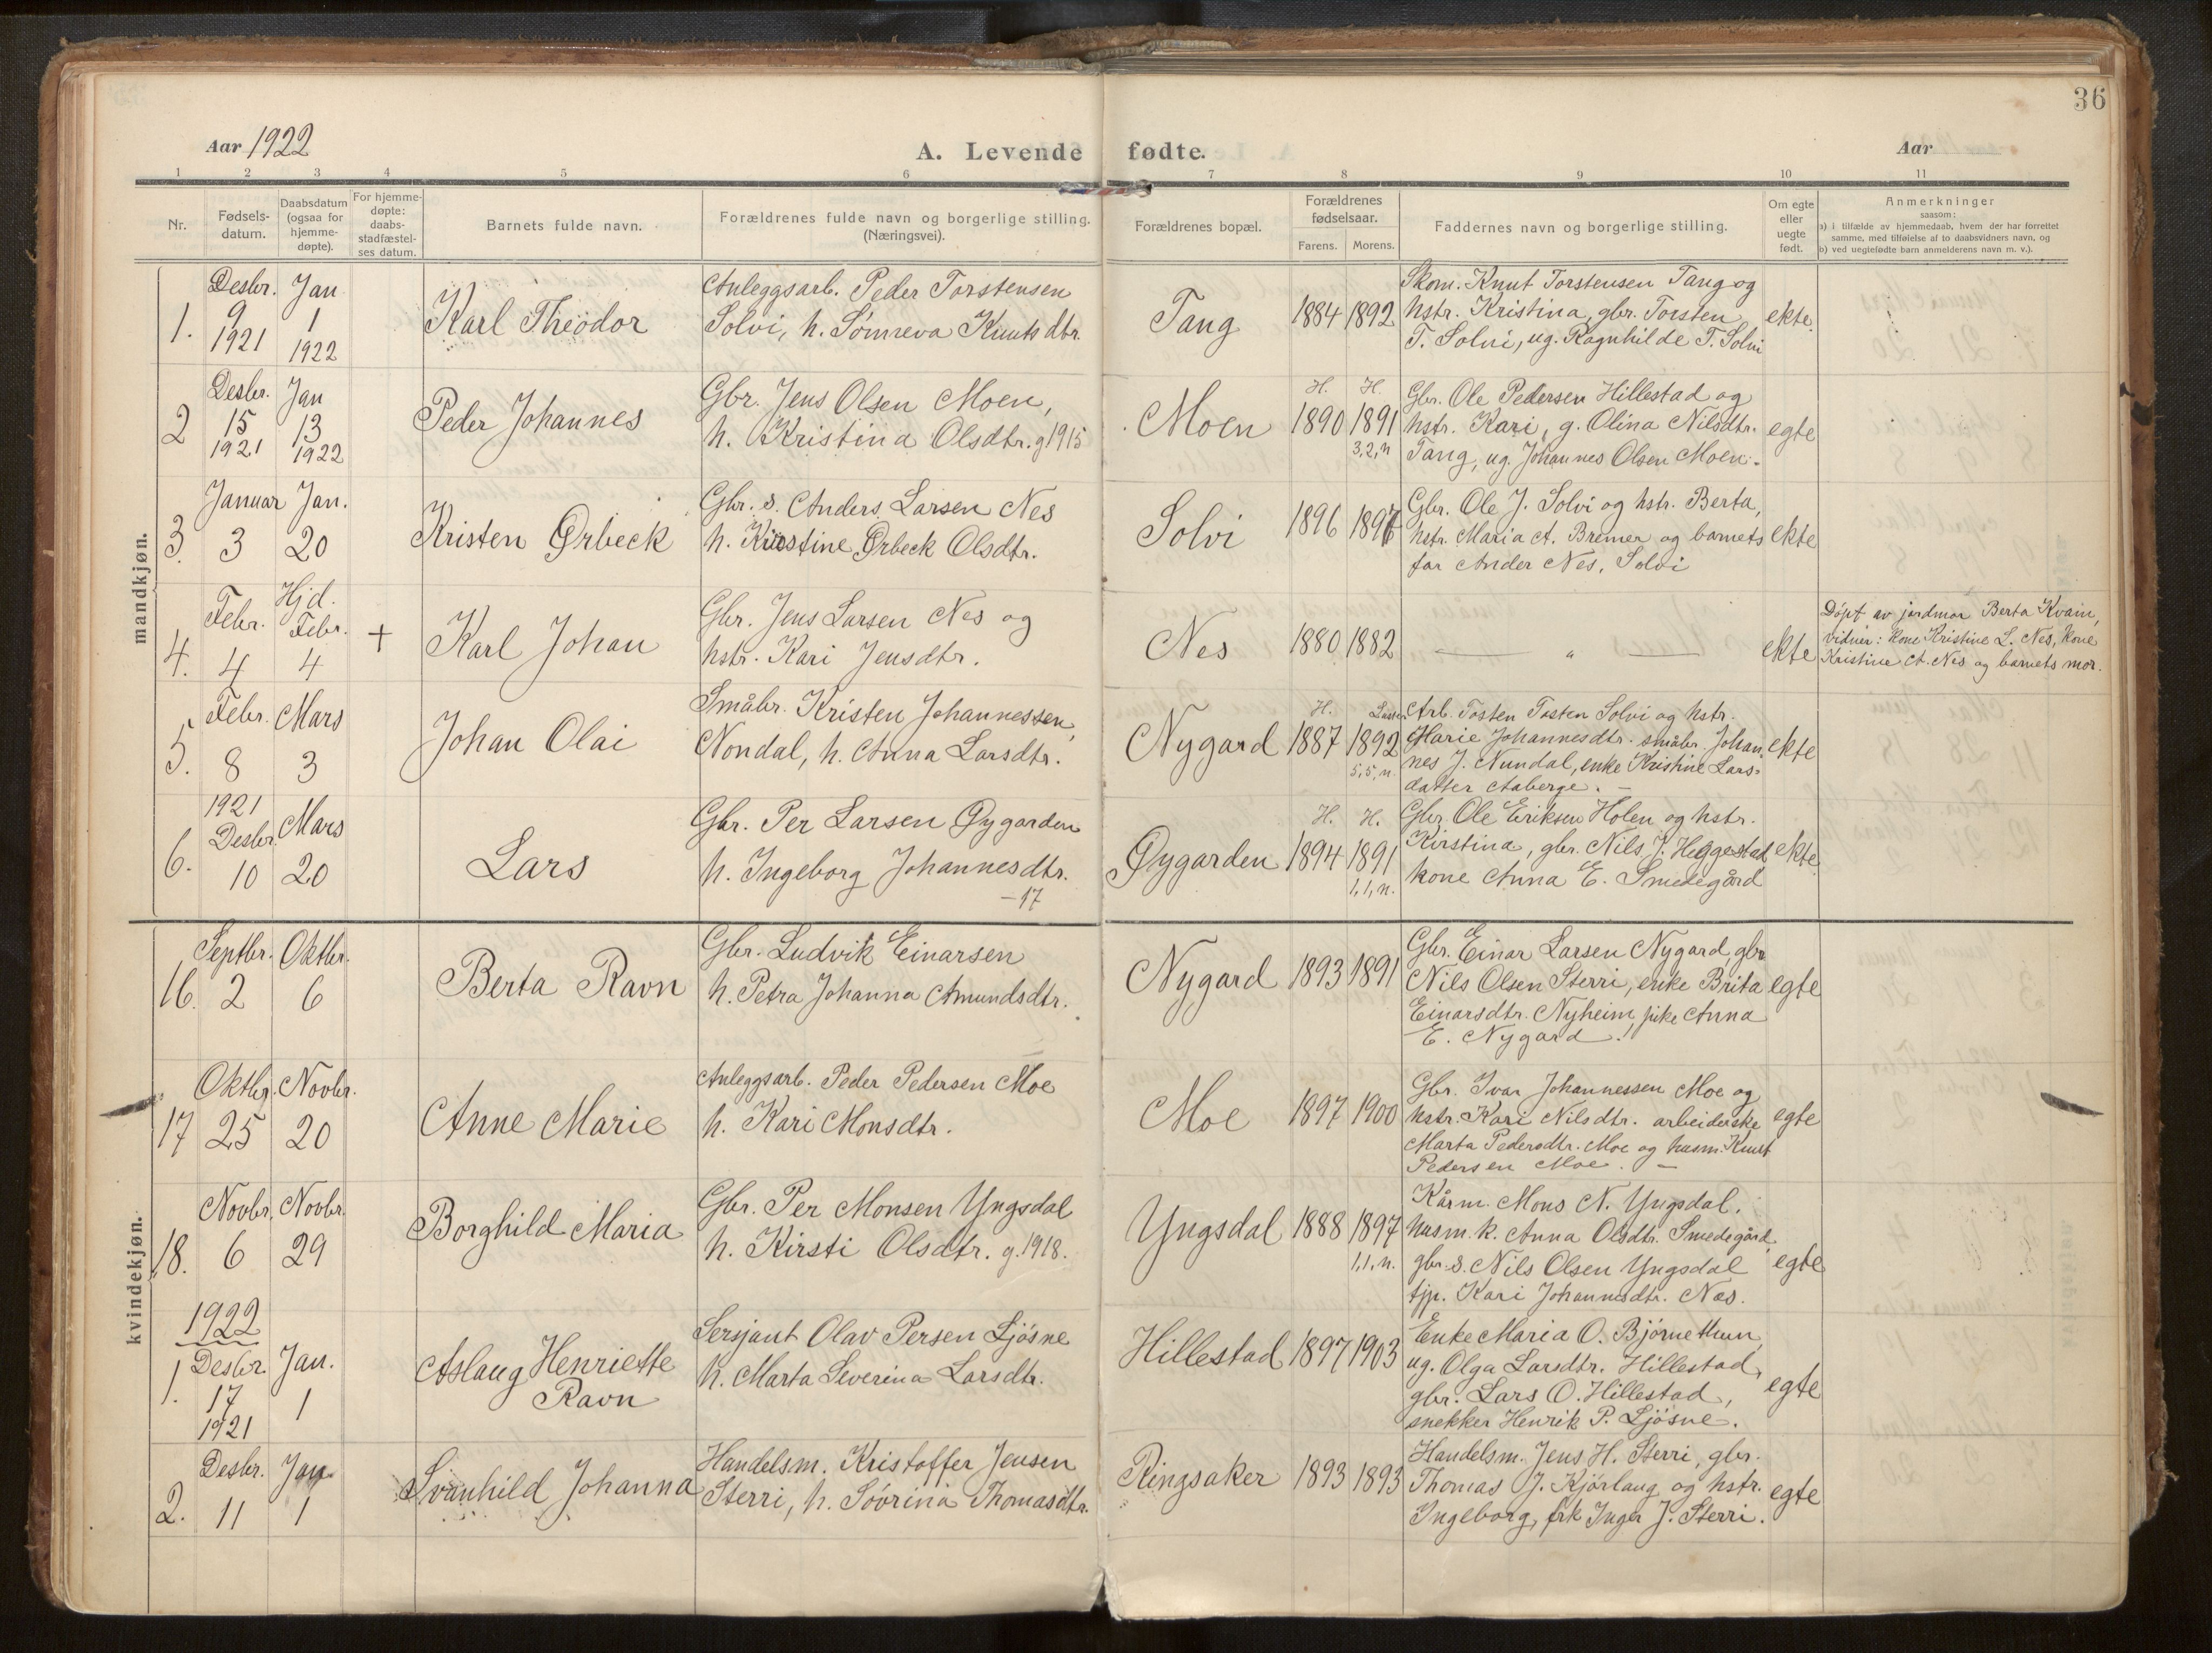 36
Aar 1922
A. Levende fødte.
Aar
1 2 3 4 5 6 7 8 9 10 11
Nr.
Fødsels-
datum.
Daabsdatum
(ogsaa for
hjemme-
døpte).
For hjemme-
døpte:
daabs-
stadfæstel-
ses datum.
Barnets fulde navn.
Forældrenes fulde navn og borgerlige stilling.
(Næringsvei).
Forældrenes bopæl.
Forældrenes
fødselsaar.
Farens. Morens.
Faddernes navn og borgerlige stilling.
Om egte
eller
uegte
født.
Anmerkninger
saasom:
a) i tilfælde av hjemmedaab, hvem der har forrettet
samme, med tilføielse af to daabsvidners navn, og
b) ved uegtefødte barn anmelderens navn m. v.).
mandkjøn.
1.
Desbr.
9
1921
Jan
1
1922
Karl Theodor
Anleggsarb. Peder Torstensen
Solvi, h. Sønneva Knuts dtr.
Tang
1884 1892
Skom. Knut Torstensen Tang og
hstr. Kristina, gbr. Torsten
T. Solvi, ug. Ragnhilde T. Solvi
ekte.
2
Desbr.
15
1921
Jan
13
1922
Peder Johannes
Gbr. Jens Olsen Moen,
h. Kristina Olsdtr. g 1915
Moen
H. H.
1890 1891
3,2,n
Gbr. Ole Pedersen Hillestad og
hstr. Kari, g. Olina Nilsdtr.
Tang, ug. Johannes Olsen Moen.
egte
3.
Januar
3
Jan.
20
Kristen Ørbeck
Gbr. s. Anders Larsen Nes
h. Kristine Ørbeck Olsdtr.
Solvi
1896 1897
Gbr. Ole J. Solvi og hstr. Berta,
hstr. Maria A. Bremer og barnets
far Ander Nes, Solvi
ekte
4.
Febr.
4
Hjd.
Febr.
4
+
Karl Johan
Gbr. Jens Larsen Nes og
hstr. Kari Jensdtr.
Nes
1880 1882
— " —
ekte
Døpt av jordmor Berta Kvam,
vidner: kone Kristine L. Nes, kone
Kristine A. Nes og barnets mor.
5.
Febr.
8
Mars
3
Johan Olai
Småbr. Kristen Johannessen,
Nondal, h. Anna Larsdtr.
Nygard
H. Luster
1887 1892
5,5,n.
Arb. Tosten Tosten Solvi og hstr.
Marie Johannesdtr. småbr. Johan
nes J. Nundal, enke Kristine Lars-
datter Aaberge. —
ekte
6.
1921
Desbr.
10
Mars
20
Lars
Gbr. Per Larsen Øygarden
h. Ingeborg Johannesdtr.
-17
Øygarden
H. H.
1894 1891
1,1,n.
Gbr. Ole Eriksen Holen og hstr.
Kirstina, gbr. Nils J. Heggestad
kone Anna E. Smedegård
ekte.
kvindekjøn.
16.
Septbr.
2
Oktbr.
6
Berta Ravn
Gbr. Ludvik Einarsen
h. Petra Johanna Amundsdtr.
Nygard
1893 1891
Gbr. Einar Larsen Nygard, gbr
Nils Olsen Sterri, enke Brita
Einarsdtr. Nyheim, pike Anna
E. Nygard.
egte
17
Oktbr.
25
Novbr.
20
Anne Marie
Anleggsarb. Peder Pedersen Moe
h. Kari Monsdtr.
Moe
1897 1900
Gbr. Ivar Johannessen Moe og
hstr. Kari Nilsdtr. arbeiderske
Marta Pedersdtr. Moe og husm. Knut
Pedersen Moe. —
egte
18.
Novbr.
6
Novbr.
29
Borghild Maria
Gbr. Per Monsen Yngsdal
h. Kirsti Olsdtr. g. 1918.
Yngsdal
1888 1897
1,1,n.
Kårm. Mons N. Yngsdal.
husm. k. Anna Olsdtr. Smedegård
gbr. s. Nils Olsen Yngsdal
tjp. Kari Johannesdtr. Nes.
egte
1922
1.
Desbr.
17
1921
Jan.
1
Aslaug Henriette
Ravn
Sersjant Olav Persen Ljøsne
h. Marta Severina Larsdtr.
Hillestad
1897 1903
Enke Maria O. Bjørnethun,
ug. Olga Larsdtr. Hillestad,
gbr. Lars O. Hillestad,
snekker Henrik P. Ljøsne.
egte
2.
Desbr.
11
Jan.
1
Svanhild Johanna
Handelsm. Kristoffer Jensen
Sterri, h. Søvrina Thomasdtr.
Ringsaker
1893 1893
Handelsm. Jens H. Sterri, gbr.
Thomas J. Kjørlaug og hstr.
Ingeborg, frk Inger J. Sterri.
egte